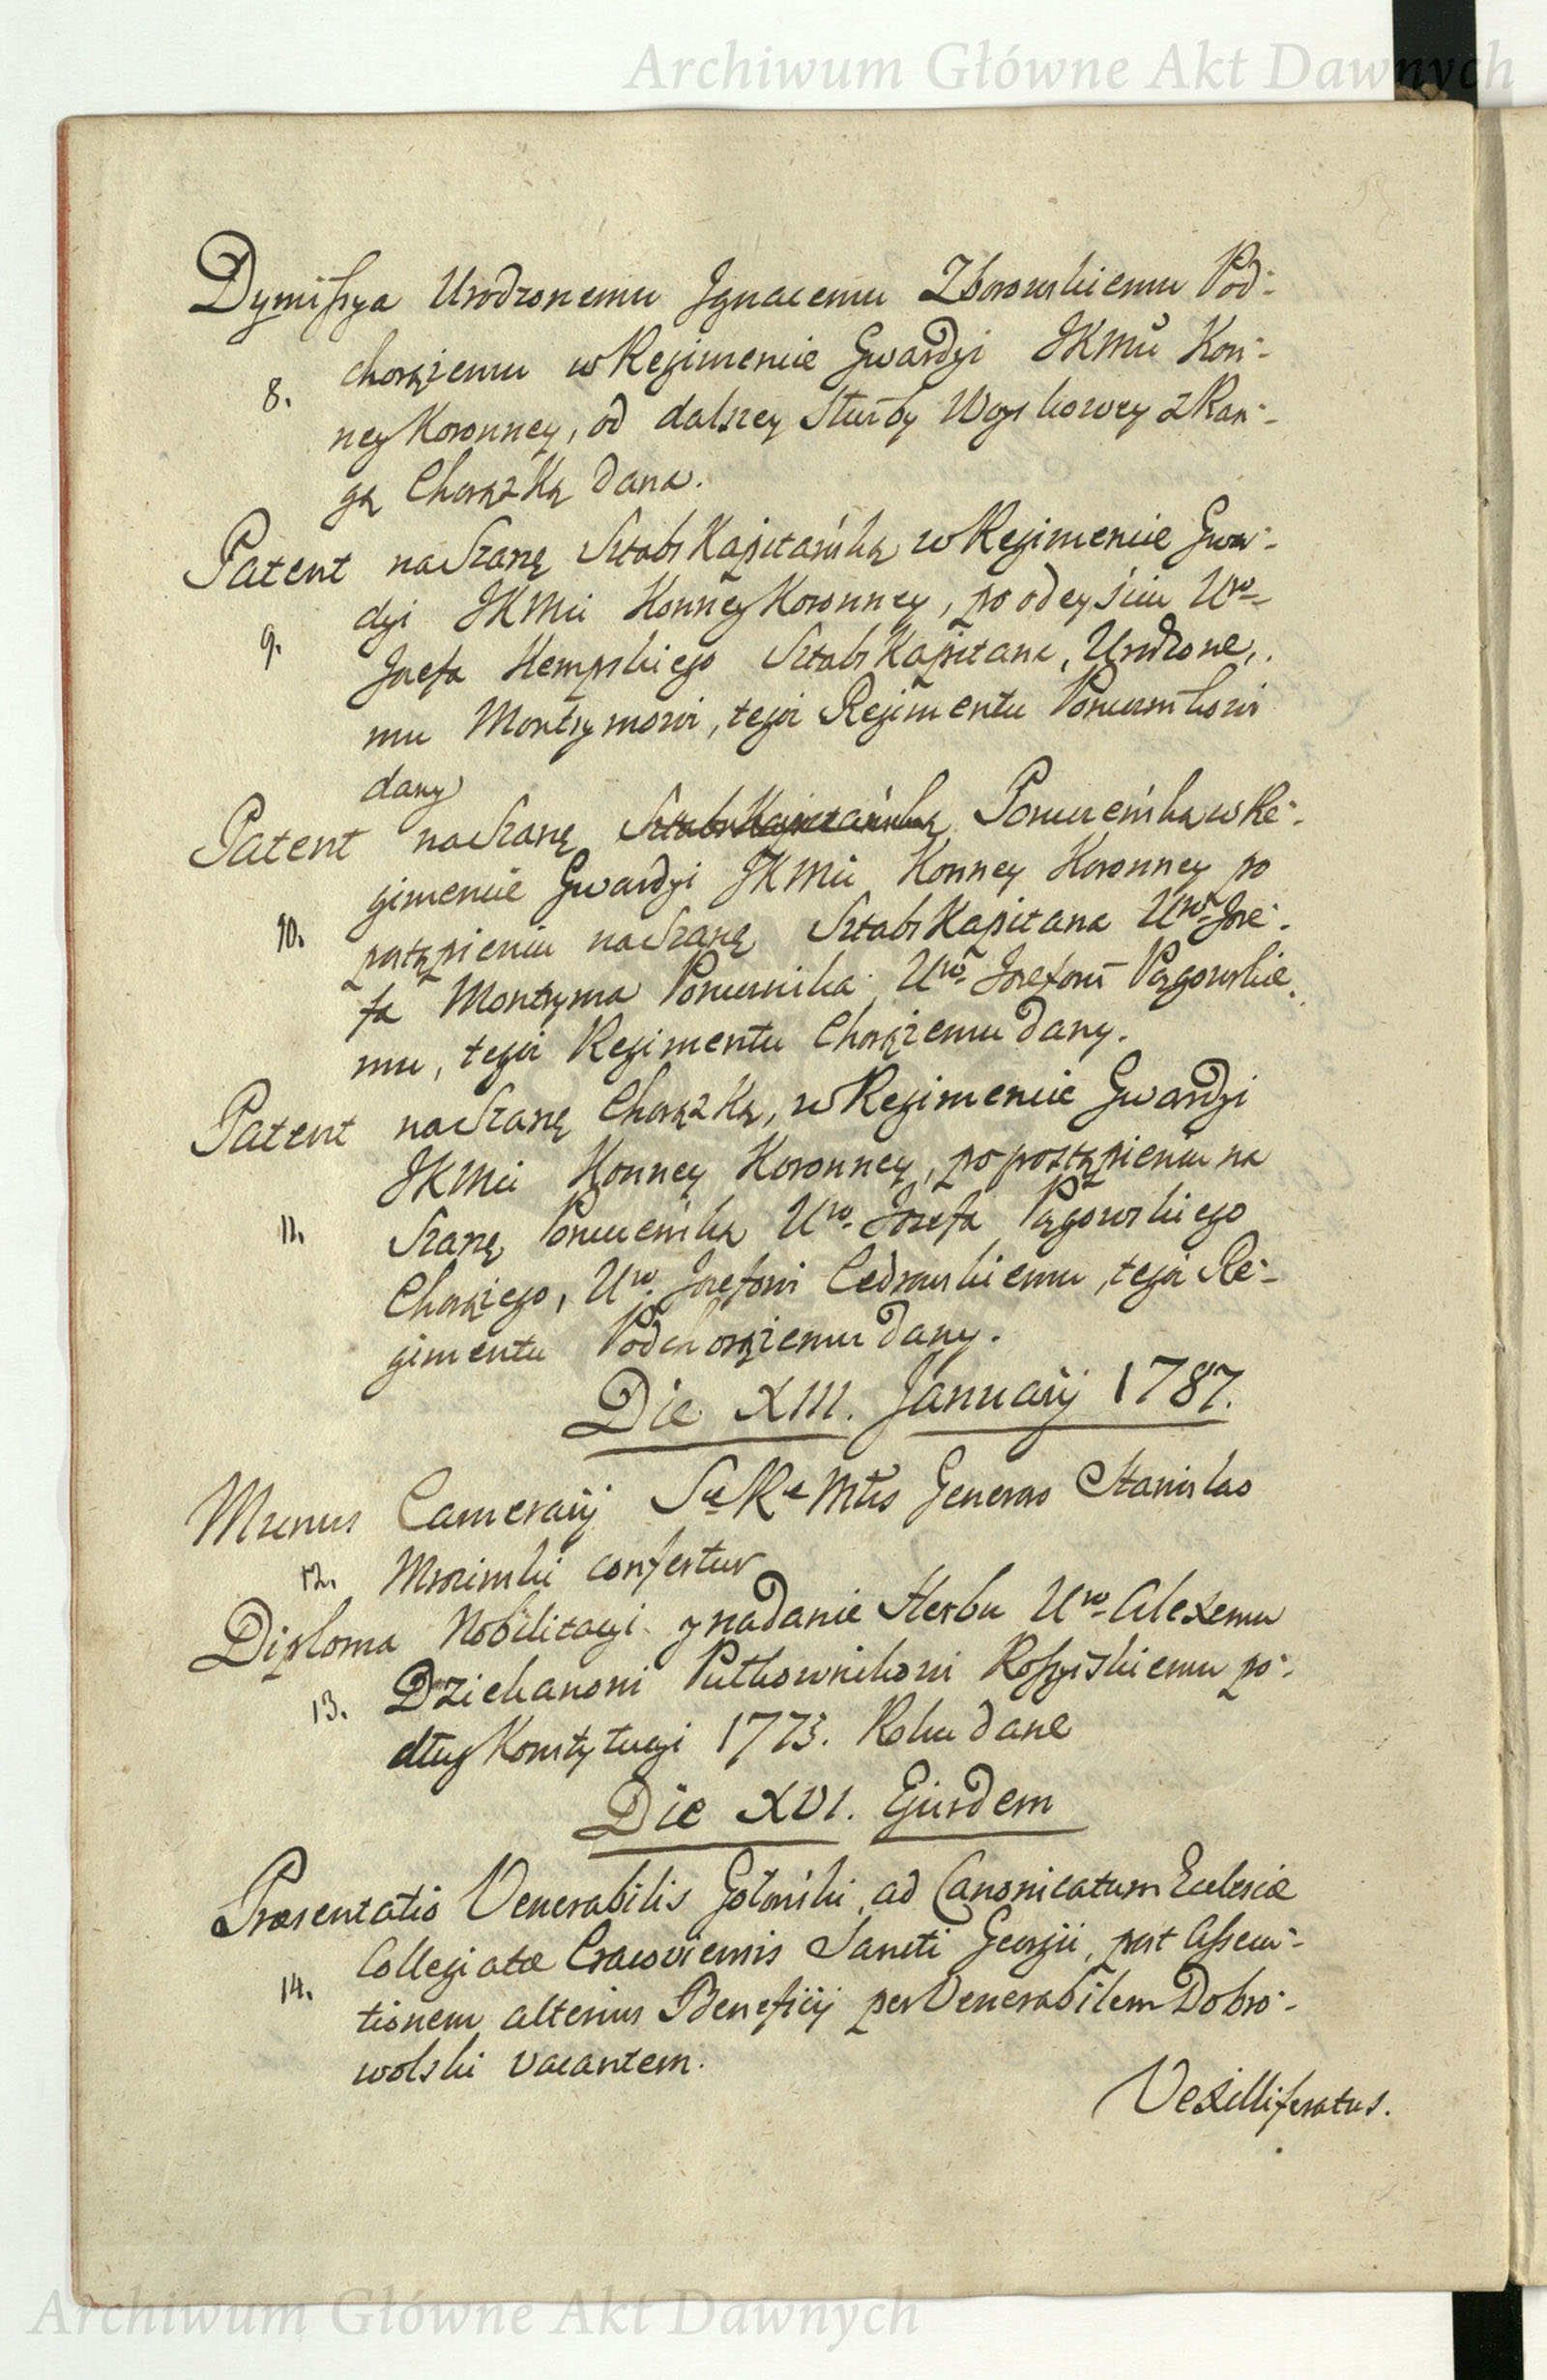 Archiwum Główne Akt Dawnych
Dymissya Urodzonemu Ignacemu Zborowskiemu Pod-
8. chorążemu w Regimencie Gwardyi JKMci Kon-
ney Koronney, od dalszey Służby Woyskowey z Ran-
gą Chorążką dana.
Patent na Szarżę Sztabs Kapitańską w Regimencie Gwar-
dyi JKMci Konney Koronney, po odeyściu Uro
9. Jozefa Kempskiego Sztabs Kapitana, Urodzone-
mu Montrymowi, tegoż Regimentu Porucznikowi
dany
Patent na Szarżę Sztabs Kapitańską Poruczeńską w Re-
gimencie Gwardyi JKMci Konney Koronney po
10. postąpieniu na Szarżę Sztabs Kapitana Uro Joze-
fa Montryma Porucznika Uro Jozefowi Pągowskie-
mu, tegoż Regimentu Chorążemu dany.
Patent na Szarżę Chorążką, w Regimencie Gwardyi
JKMci Konney Koronney, po postąpieniu na
11. Szarżę Poruczeńską Uro Jozefa Pągowskiego
Chorążego, Uro Jozefowi Cedrowskiemu, tegoż Re-
gimentu Podchorążemu dany.
Die XIII. Januarij 1787.
Munus Camerarij Sæ Ræ Mtis Generoso Stanislao
12. Mrozinski confertur
Diploma Nobilitacyi y nadanie Herbu Uro Alexemu
13. Dziekanoni Pułkownikowi Rossyiskiemu po-
dług Konstytucyi 1773. Roku dane
Die XVI. Ejusdem
Præsentatio Venerabilis Gołoński, ad Canonicatum Ecclesiæ
Collegiatæ Cracoviensis Sancti Georgii, post Assecu-
14. tionem alterius Beneficij per Venerabilem Dobro-
wolski vacantem.
Vexilliferatus.
Archiwum Główne Akt Dawnych